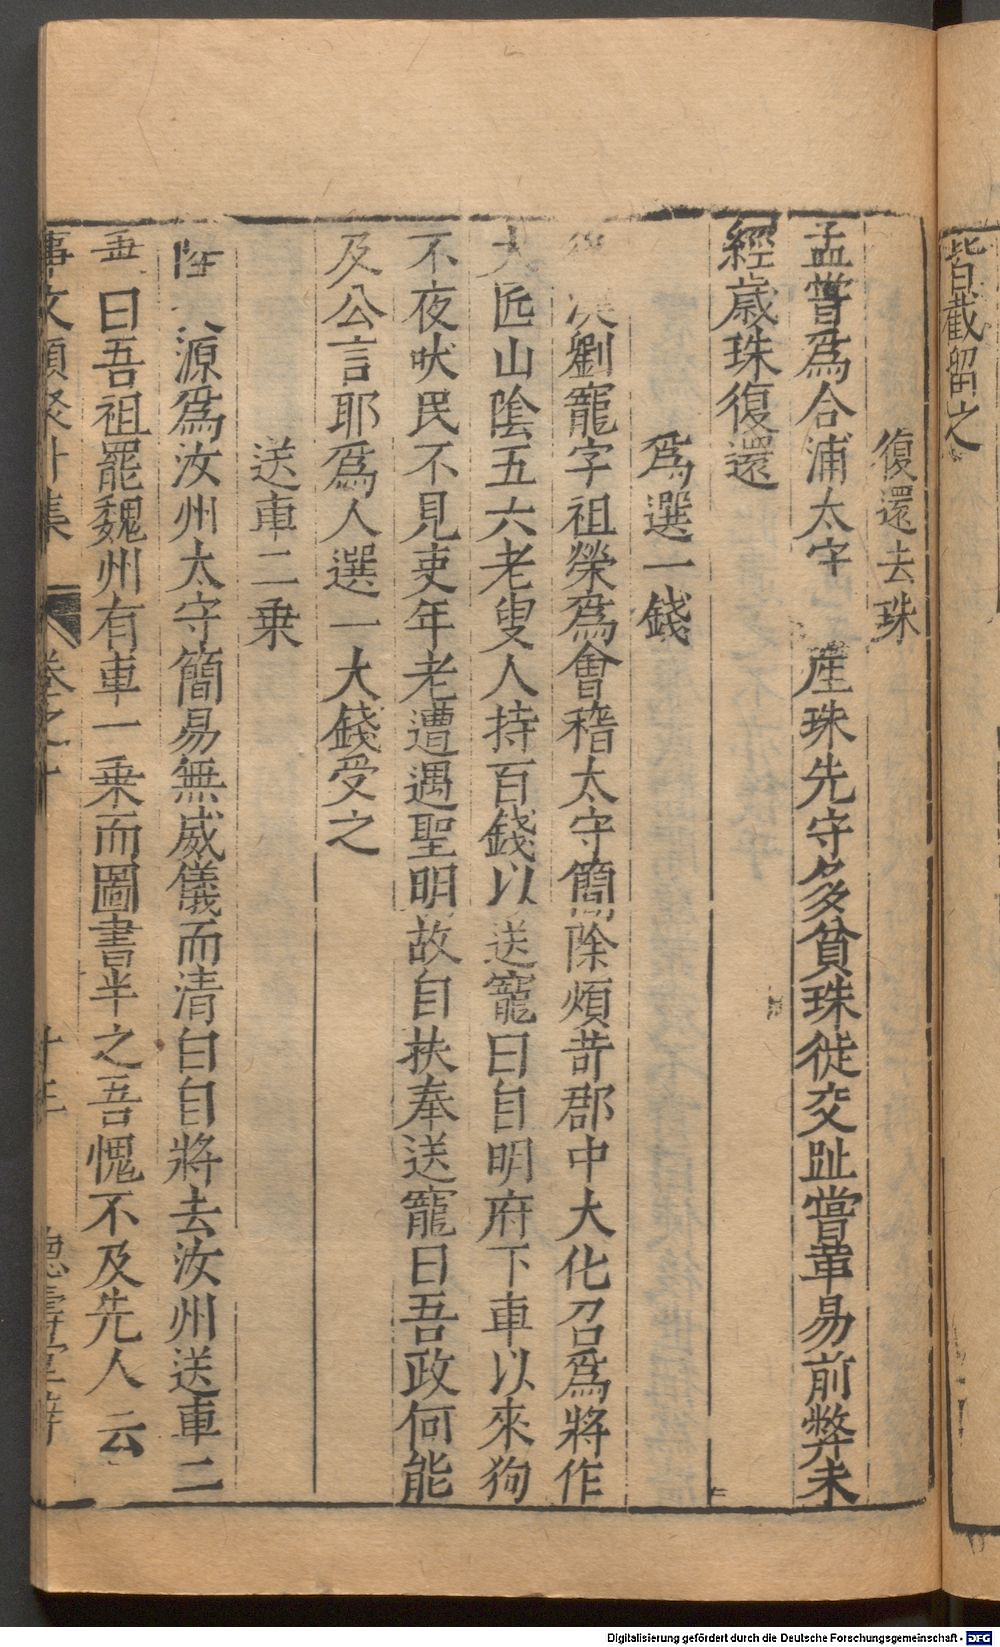 皆截留之
復還去珠
孟嘗爲合浦太守 產珠先守多貧珠徙交趾嘗革易前弊未
經歲珠復還
爲選一錢
漢劉寵字祖榮爲會稽太守簡除煩苛郡中大化召爲將作
大匠山陰五六老叟人持百錢以送寵曰自明府下車以來狗
不夜吠民不見吏年老遭遇聖明故自扶奉送寵曰吾政何能
及公言耶爲人選一大錢受之
送車二乗
源爲汝州太守簡易無威儀而清白自將去汝州送車二
乗曰吾祖罷魏州有車一乗而圖書半之吾愧不及先人云
事文類聚 集 卷之十 德壽堂梓
Digitalisierung gefördert durch die Deutsche Forschungsgemeinschaft - DFG